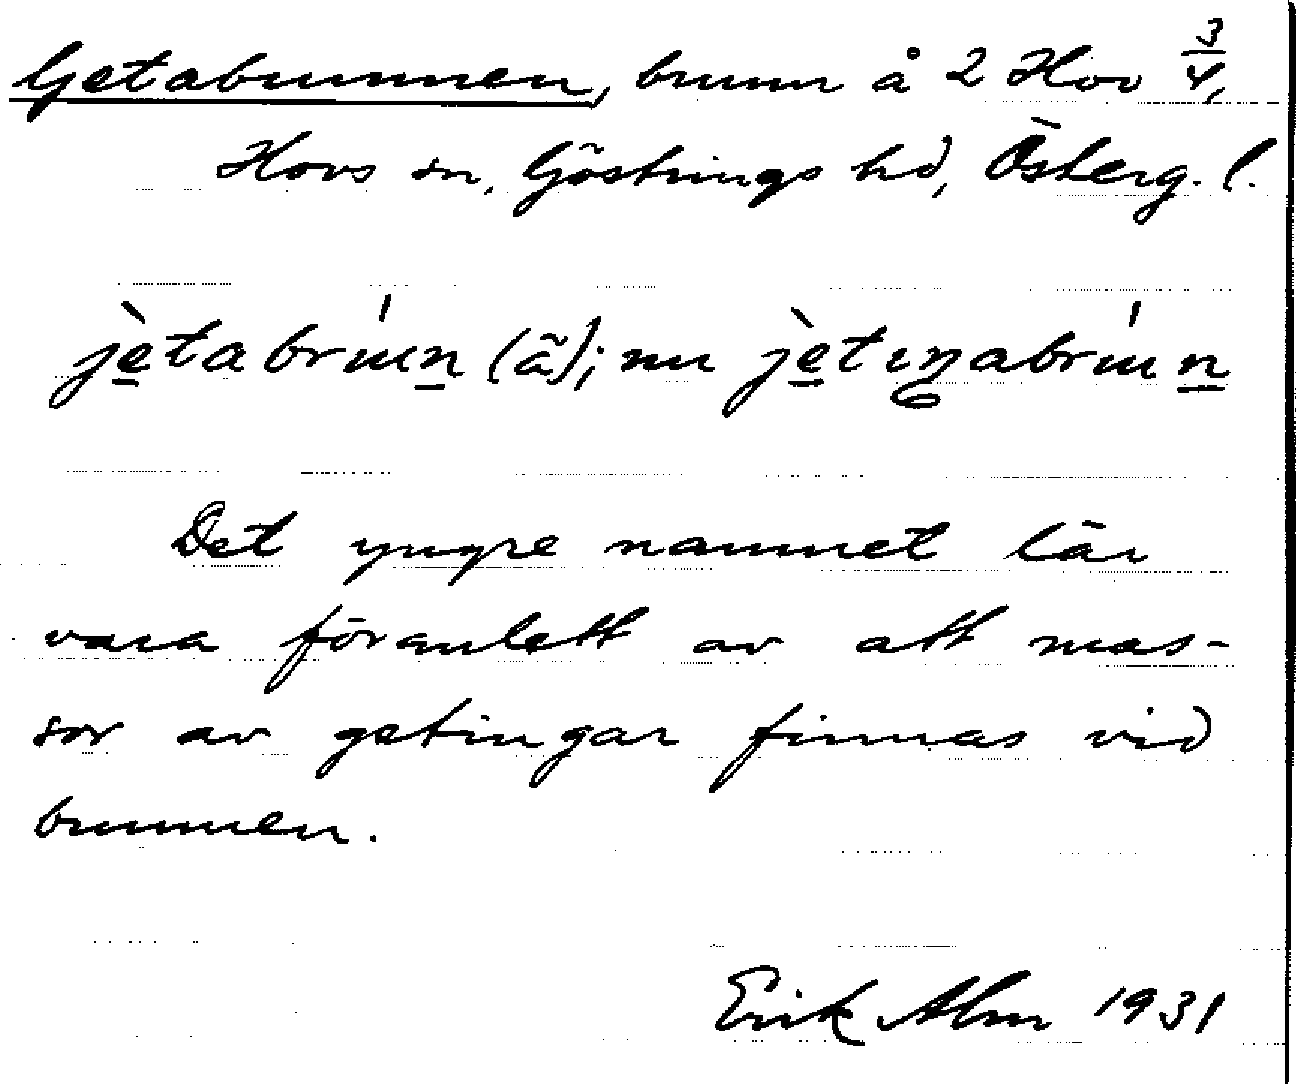 Getabrunnen, brunn å 2 Hov 3/4,
Hovs sn, Göstrings hd, Österg. l.
jètabrún (ã); nu jètıŋabrún
Det yngre namnet lär
vara föranlett av att mas-
sor av getingar finnas vid
brunnen.
Erik Alm 1931